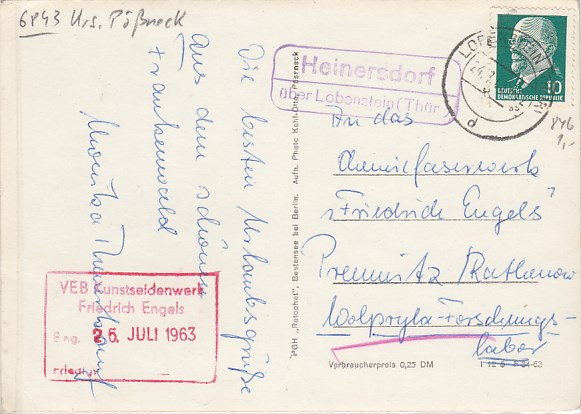 6843 Krs. Pößneck
Die besten Urlaubsgrüße
aus dem schönen
Frankenwald
Monika
Heinersdorf
über Lobenstein (Thür.)
LOBENSTEIN
DEUTSCHE
DEMOKRATISCHE REPUBLIK
10
846
1,-
An das
Chemiefaserwerk
"Friedrich Engels"
Premnitz / Rathenow
Wolpryla-Forschungs-
labor
VEB Kunstseidenwerk
Friedrich Engels
Eing. 26. JULI 1963
erledigt
PGH „Rotophot", Bestensee bei Berlin. Aufn. Photo Kohl-Otto, Pössneck
Verbraucherpreis 0,25 DM